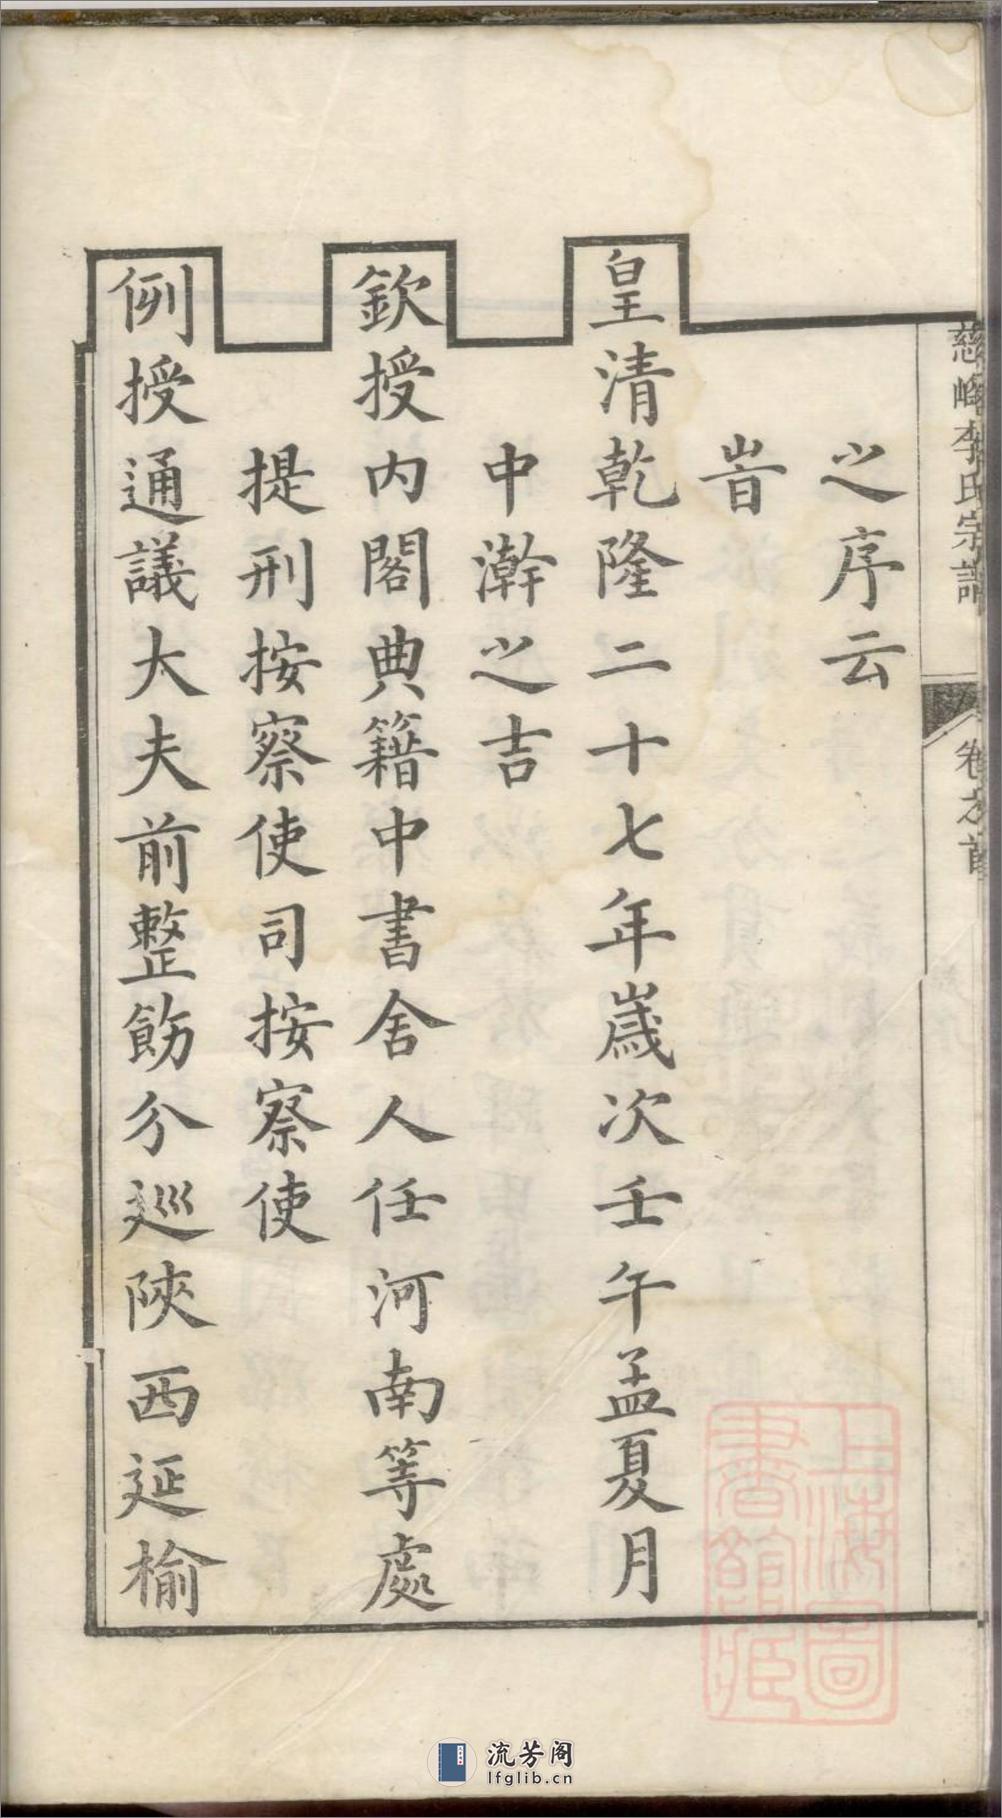 慈峰李氏宗譜
卷之首
之序云
旹
皇清乾隆二十七年歲次壬午孟夏月
中澣之吉
欽授內閣典籍中書舍人任河南等處
提刑按察使司按察使
例授通議大夫前整飭分巡陝西延榆
上海圖
書館藏
流芳阁
lfglib.cn